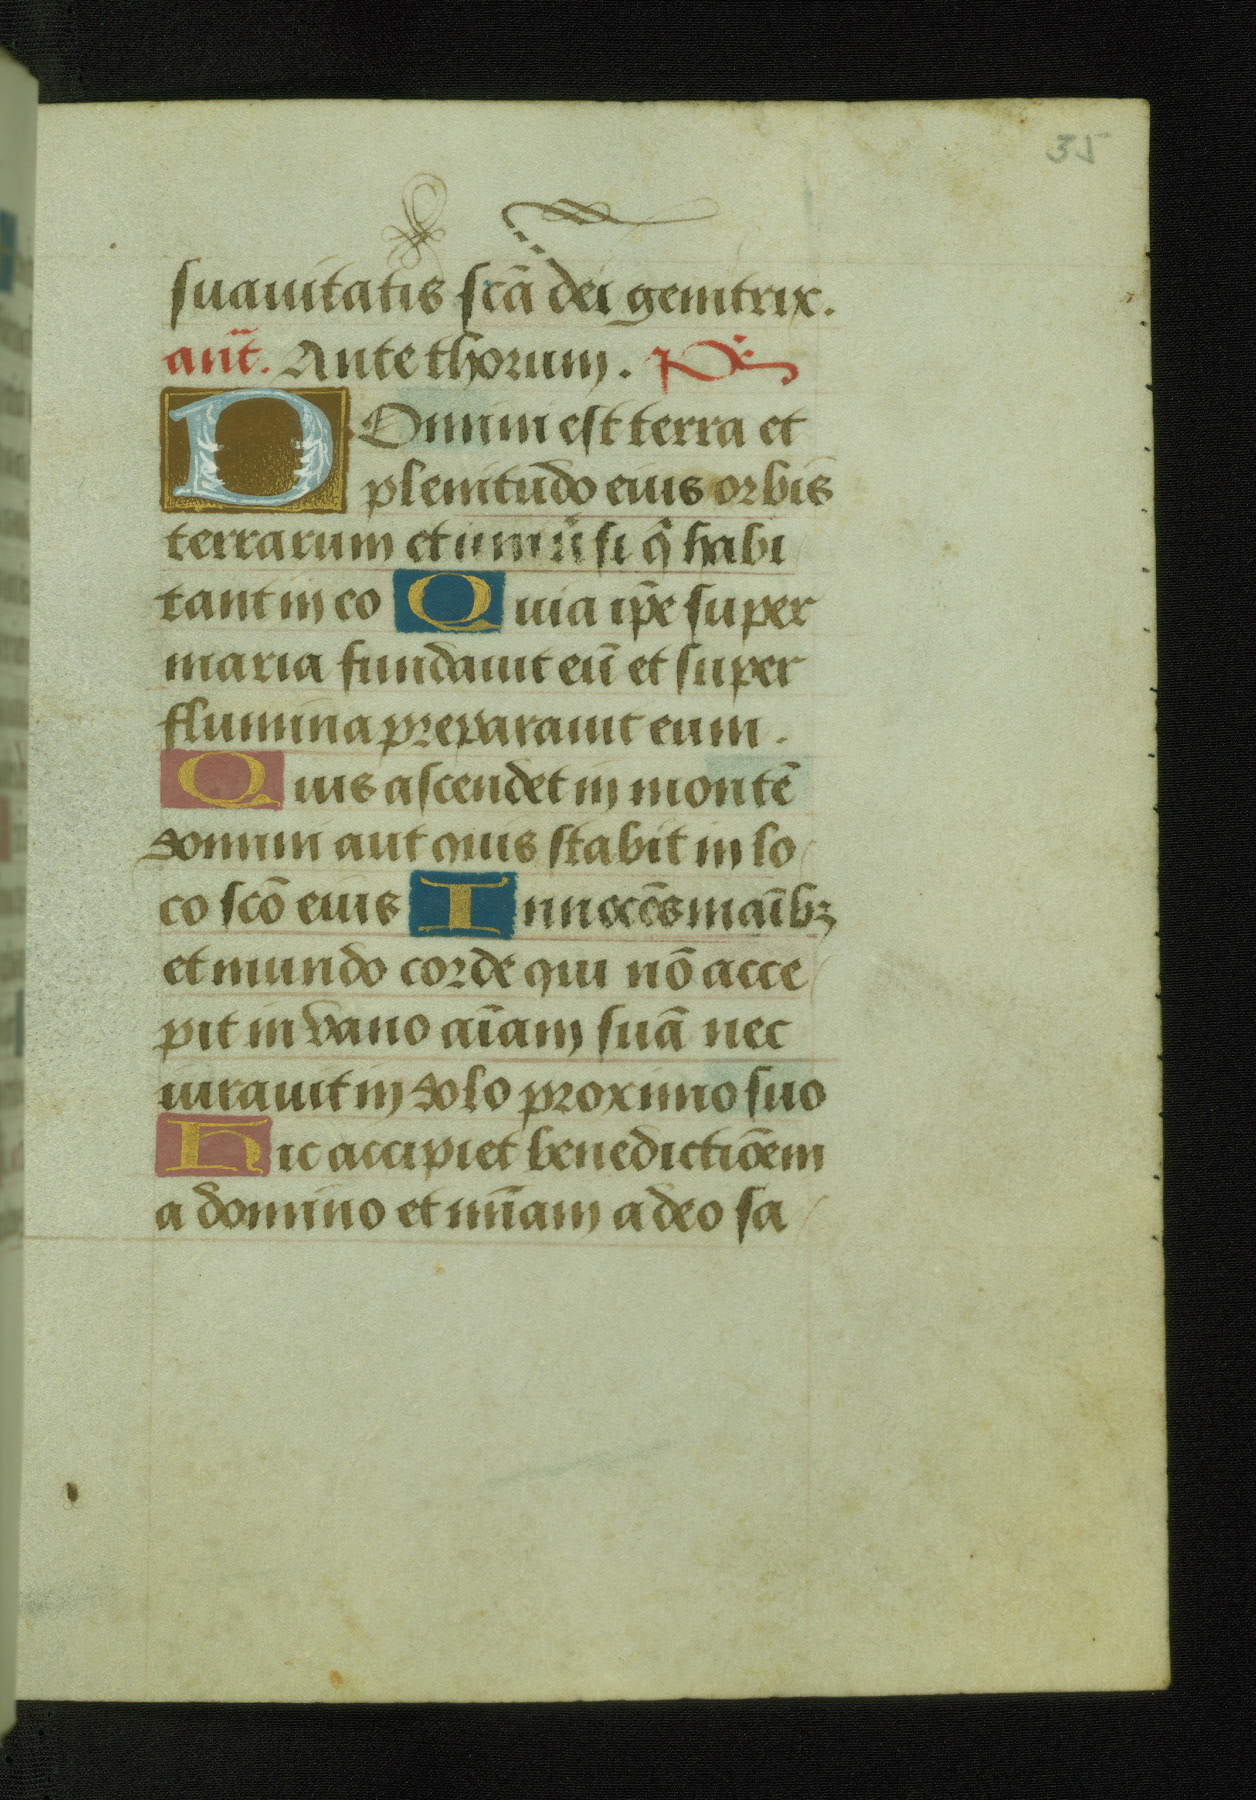 35
suauitatis scā dei genitrix.
ant̄. Ante thorum. Ps̄
DOmini est terra et
plenitudo eius orbis
terrarum et uniuūsi q̄ habi
tant in eo Quia ip̄e super
maria fundauit eū et super
flumina preparauit eum.
Quis ascendet in montē
domini aut quis stabit in lo
co scō eius Innocēs māibꝫ
et mundo corde qui nō acce
pit in vano aīam suā nec
iurauit in dolo proximo suo
Hic accipiet benedictiōem
a domino et mīiam a deo sa